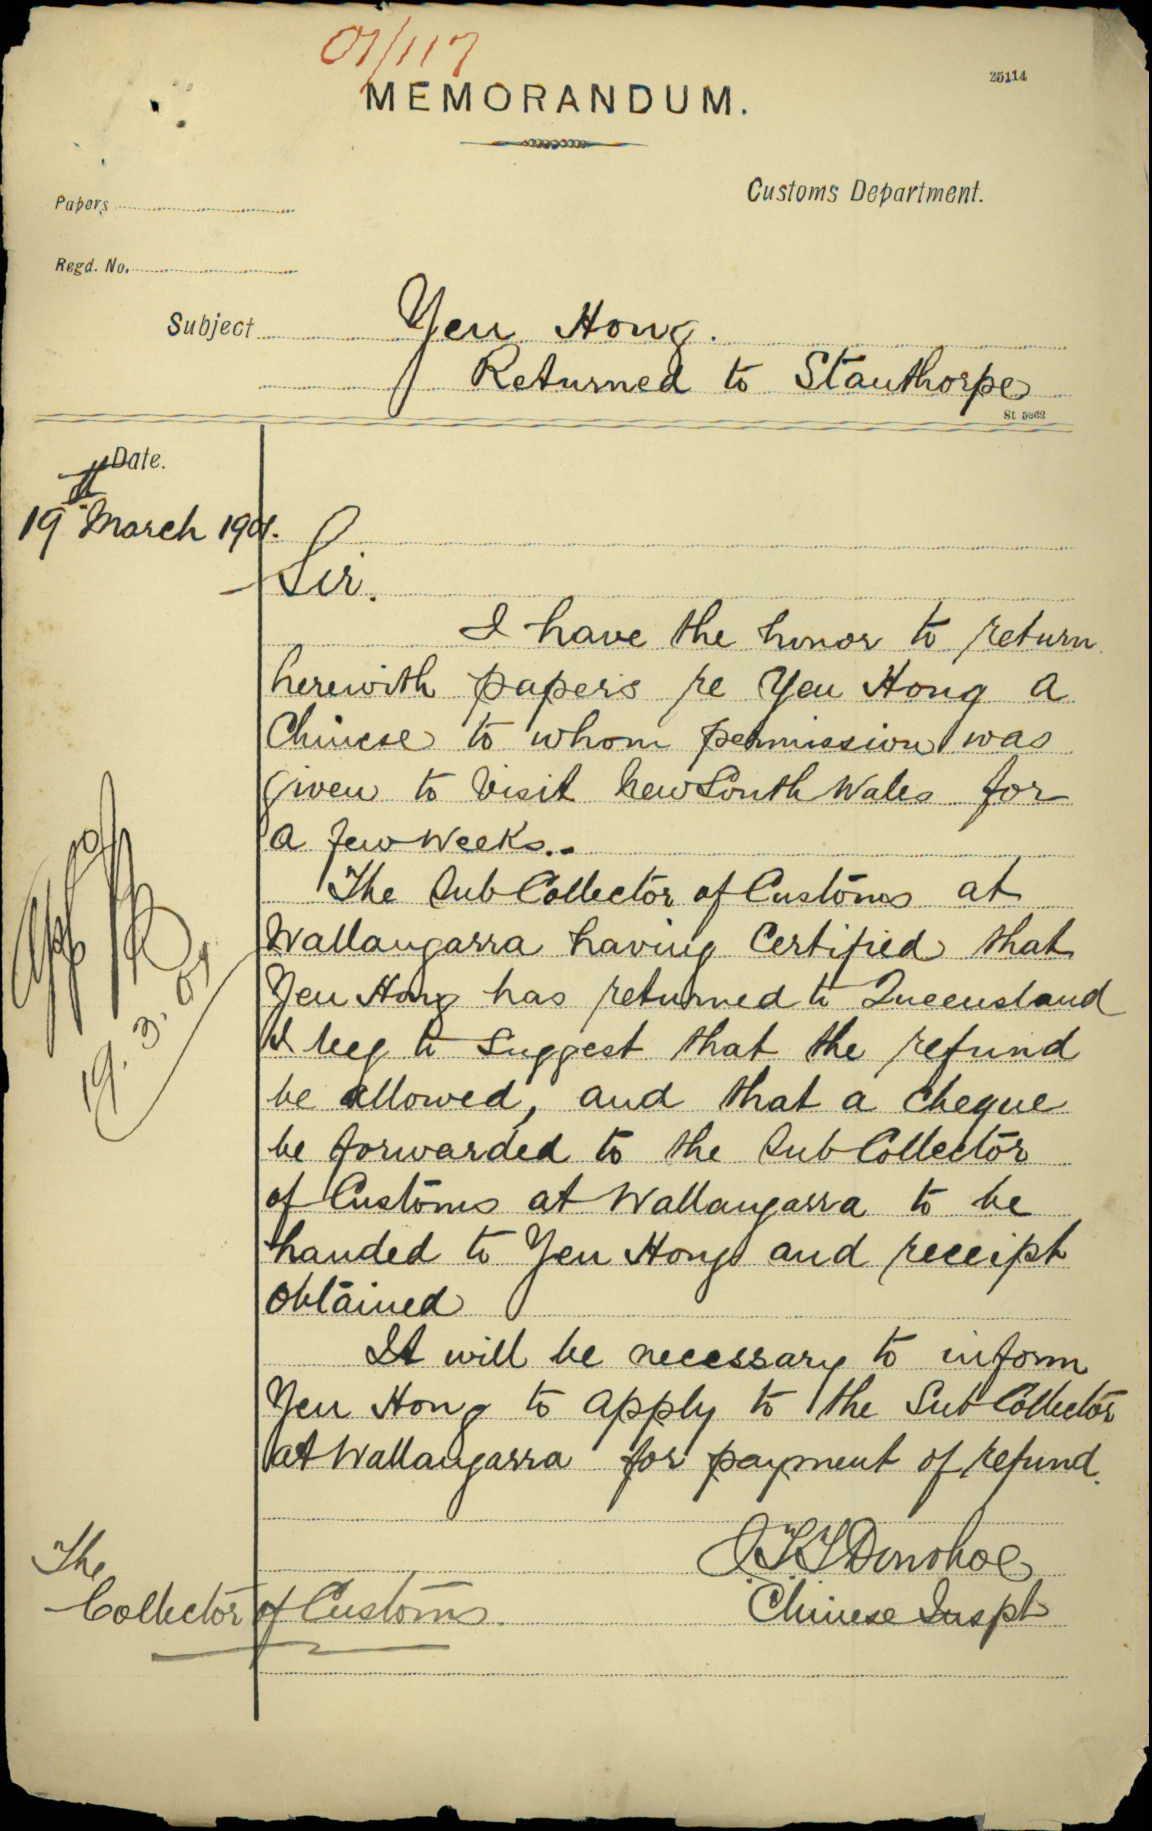 01/117
25114
MEMORANDUM.
Customs Department.
Papers
Regd. No.
Subject Yen Hong.
Returned to Stanthorpe
St 5862
Date.
19th March 1901.
Sir.
I have the honor to return
herewith papers re Yen Hong a
Chinese to whom permission was
given to visit New South Wales for
a few weeks..
The Sub Collector of Customs at
Wallangarra having Certified that
Yen Hong has returned to Queensland
I beg to suggest that the refund
be allowed, and that a cheque
be forwarded to the Sub Collector
of Customs at Wallangarra to be
handed to Yen Hong and receipt
obtained
It will be necessary to inform
Yen Hong to apply to the Sub Collector
at Wallangarra for payment of refund.
Donohoe
Chinese Inspt
The
Collector of Customs
19.3.01